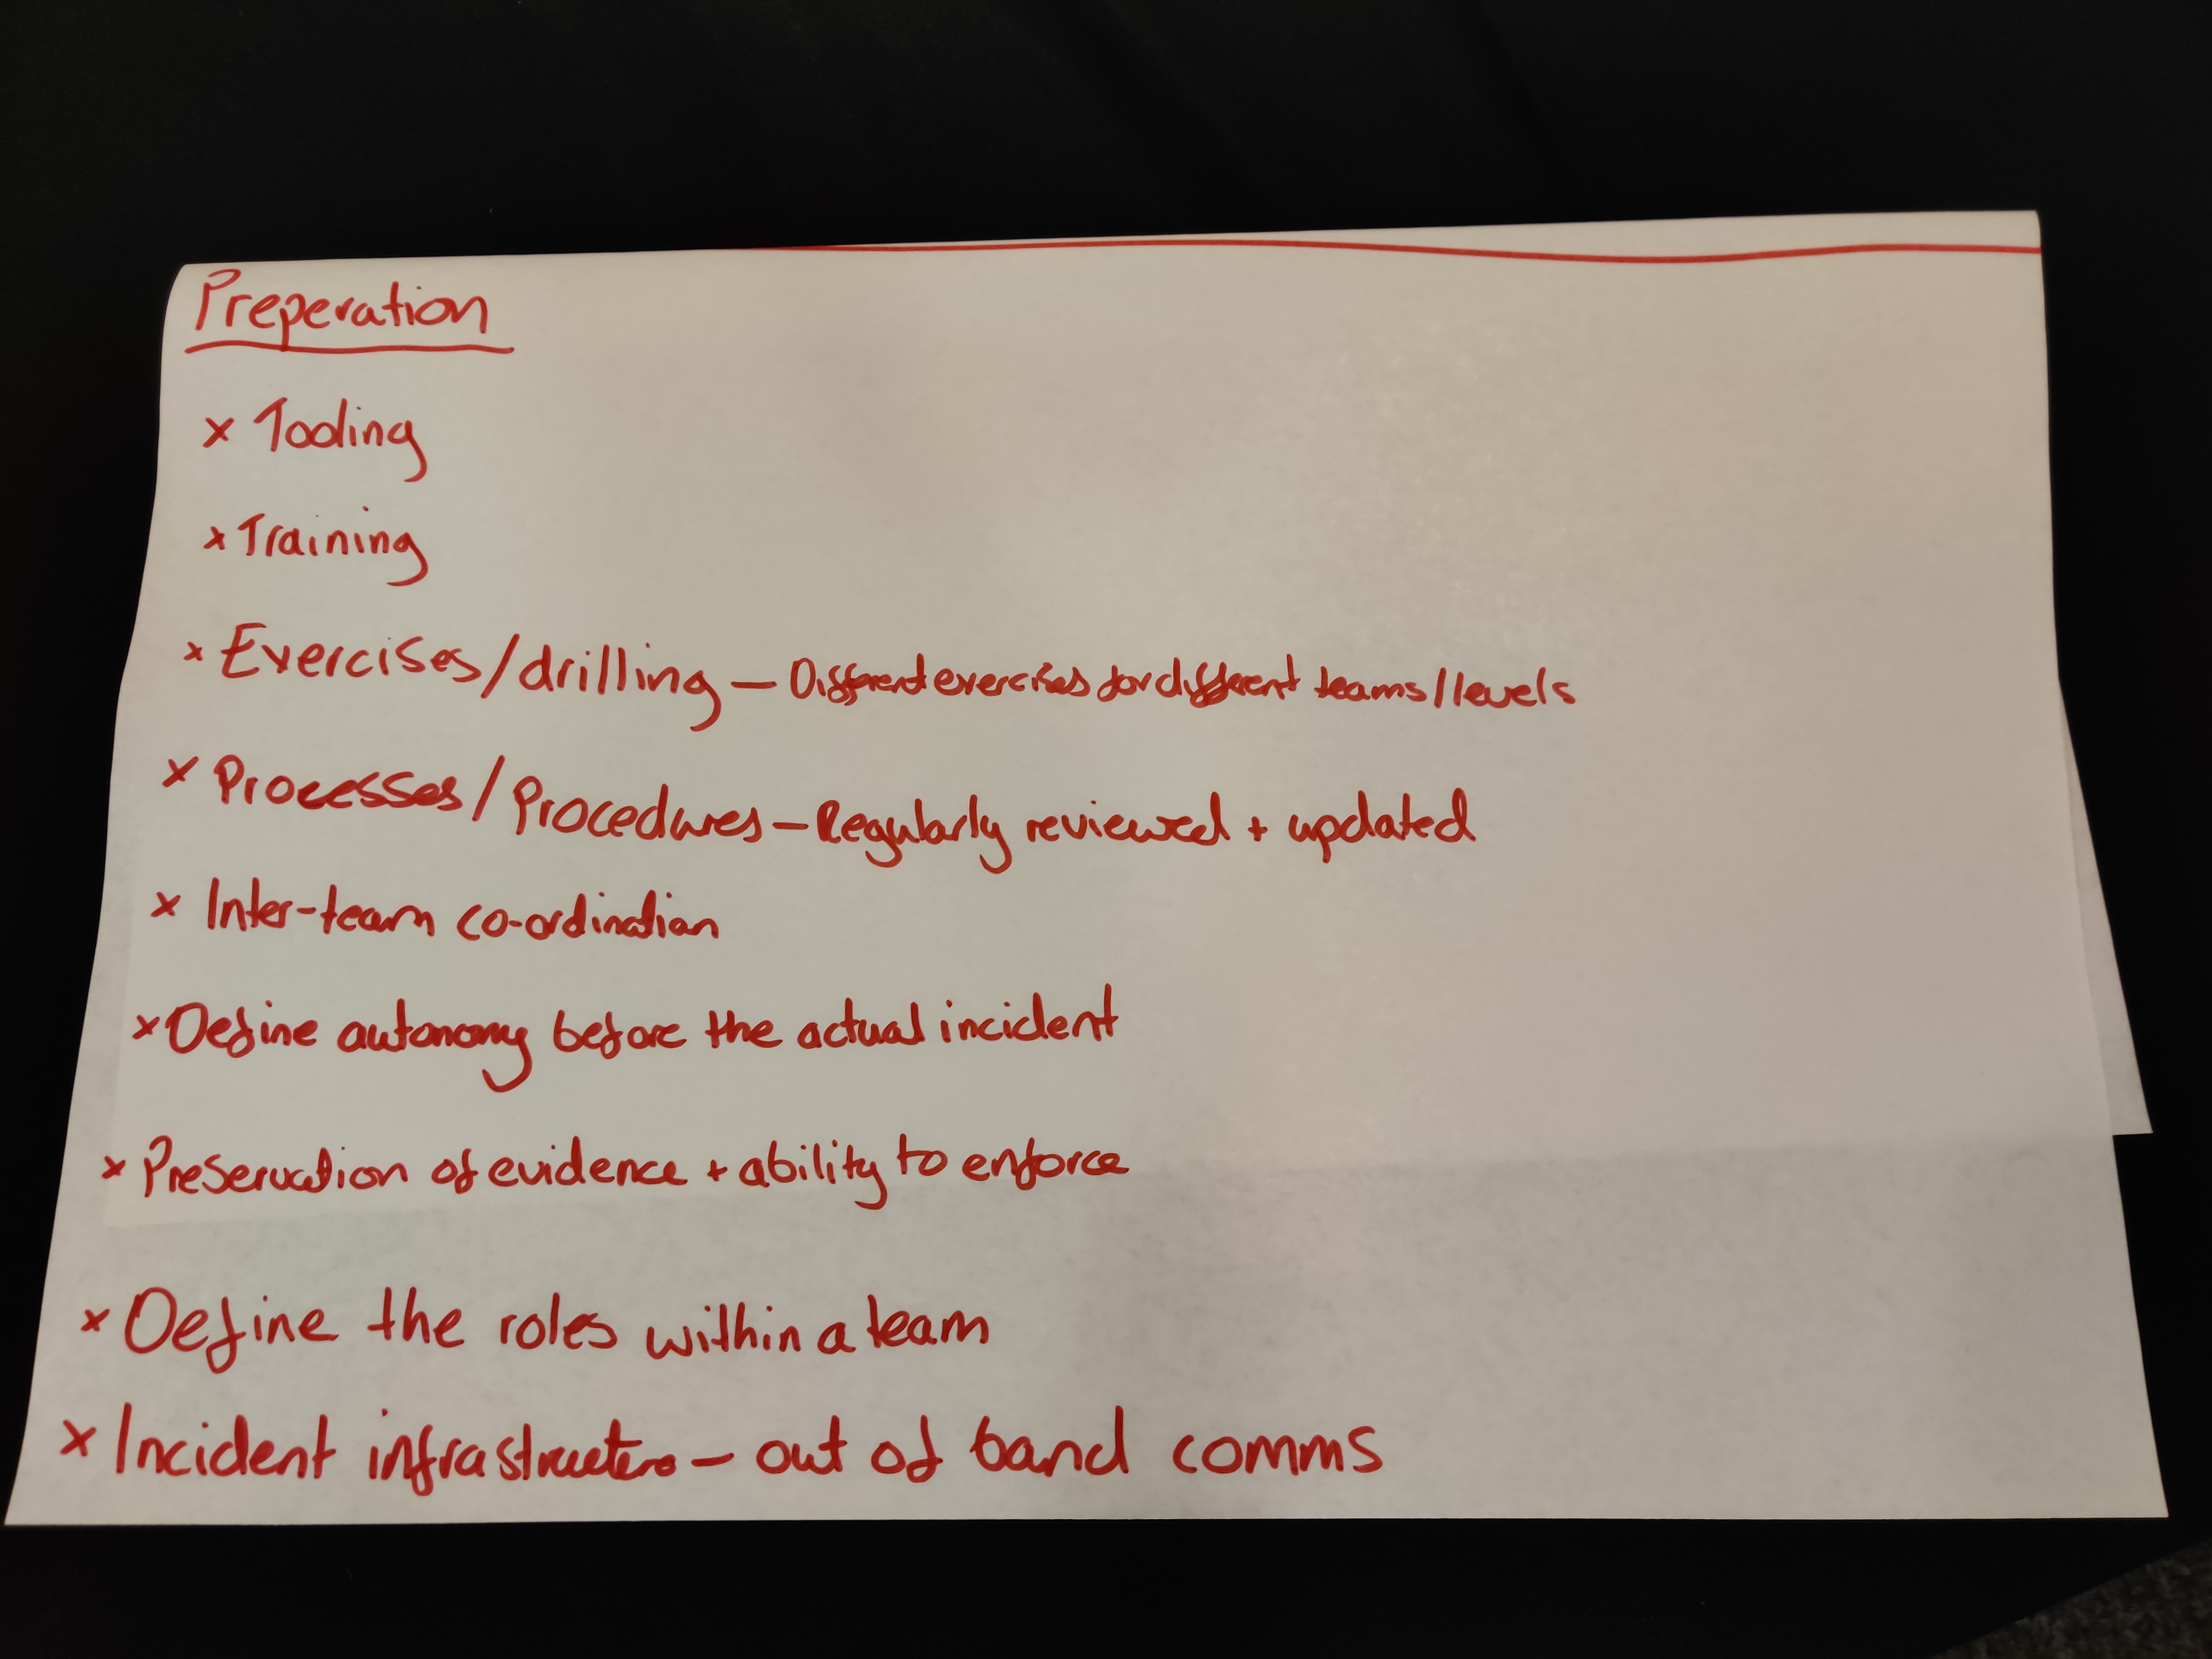 Preperation
x Tooling
x Training
x Exercises/drilling – Different exercises for different teams/levels
x Processes/Procedures – Regularly reviewed + updated
x Inter-team co-ordination
x Define autonomy before the actual incident
x Preservation of evidence + ability to enforce
x Define the roles within a team
x Incident infrastructure – out of band comms